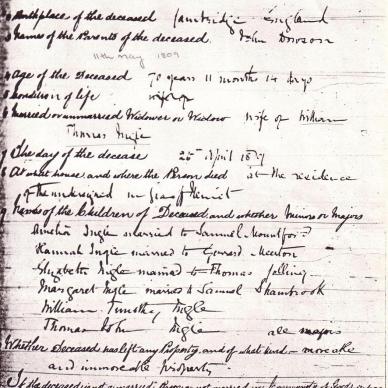 Birthplace of the deceased England
Names of the Parents of the deceased John Dowson
11th May 1809
Age of the Deceased 70 years 11 months 14 days
Condition of life
Married or unmarried Widower or Widow wife of William
Thomas Ingle
The day of the decease 25th April
At what house and where the Person died at the residence
of the undersigned in
Names of the Children of Deceased, and whether Minors or Majors
Amelia Ingle married to Samuel Mountford
Hannah Ingle married to
Elizabeth Ingle married to Thomas Jelling
Margaret Ingle married to Samuel Shambrook
William Timothy Ingle
Thomas John Ingle all majors
Whether Deceased has left any Property, and of what kind - movable
and immovable property